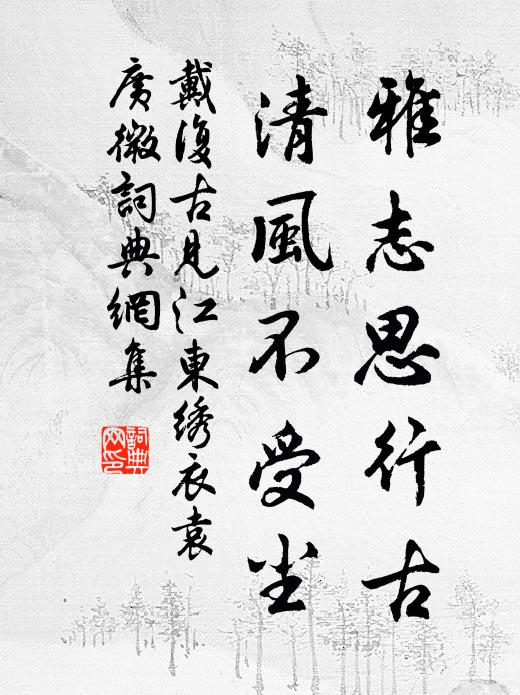 雅志思行古
清風不受尘
戴復古見江東绣衣袁
廣微詞典網集
詞典
网印